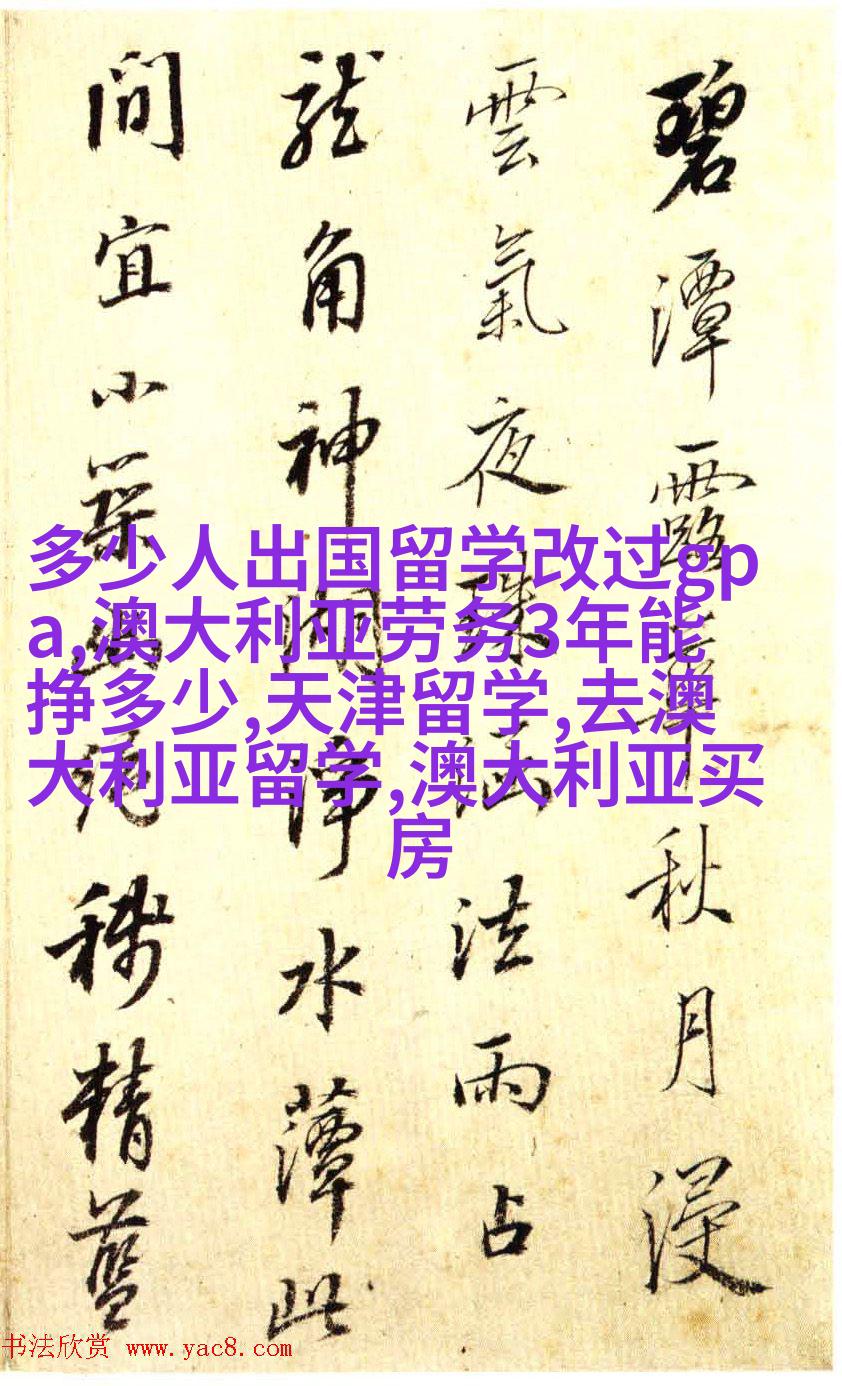 碧潭露華秋月浸
雲氣夜珠涵法雨占
龍角神淨水藫此
間宜小築幽絕稱精藍
多少人出国留学改过gp
a,澳大利亚劳务3年能
挣多少,天津留学,去澳
大利亚留学,澳大利亚买
房
书法欣赏 www.yac8.com